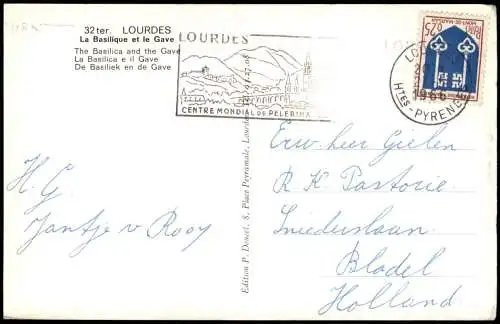 32ter. LOURDES
La Basilique et le Gave
The Basilica and the Gave
La Basilica e il Gave
De Basiliek en de Gave
LOURDES
CENTRE MONDIAL DE PELERINA
1966
Htes-PYRENE
0,25
MONT-DE-MARSAN
Erw. heer Gielen
R. K. Pastorie
Sniederslaan
Bladel
Holland
H. G.
Jantje v Rooy
Edition P. Doucet, 8, Place Peyramale, Lourdes